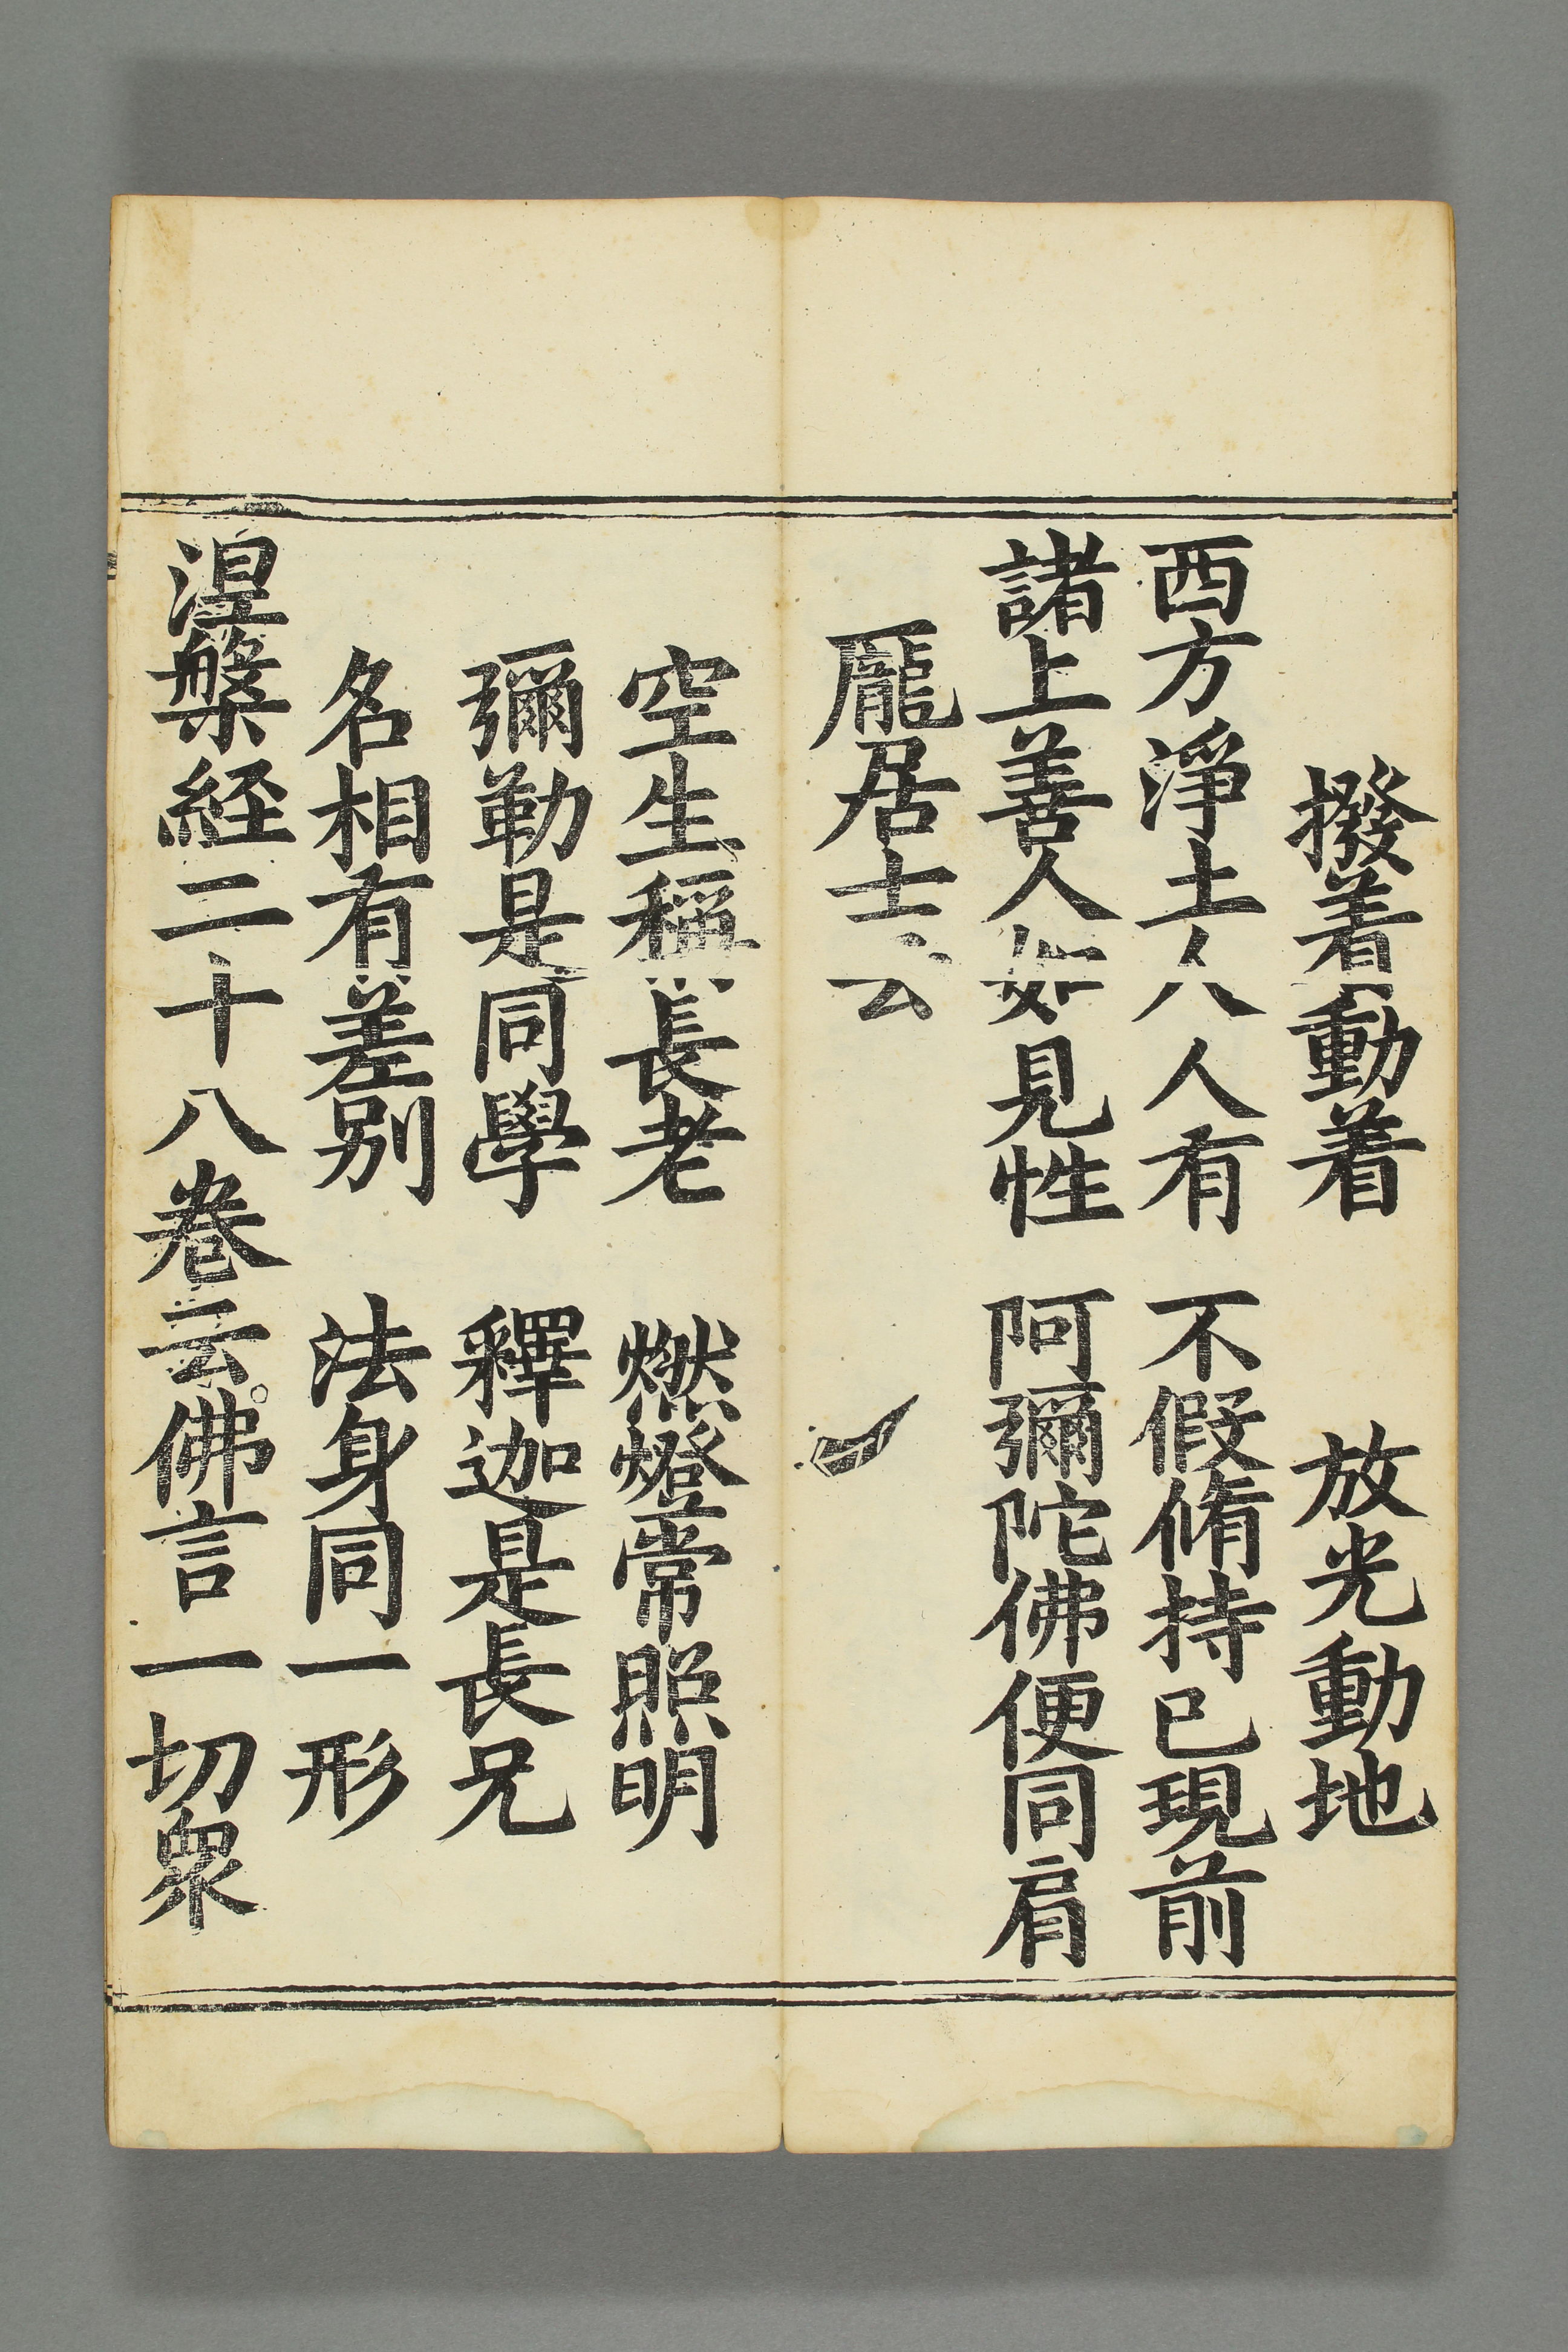 撥着動着　放光動地
西方淨土人人有　不假脩持已現前
諸上善人如見性　阿彌陀佛便同肩
龐居士云
空生稱長老　燃燈常照明
彌勒是同學　釋迦是長兄
名相有差别　法身同一形
涅槃経二十八卷云佛言一切衆